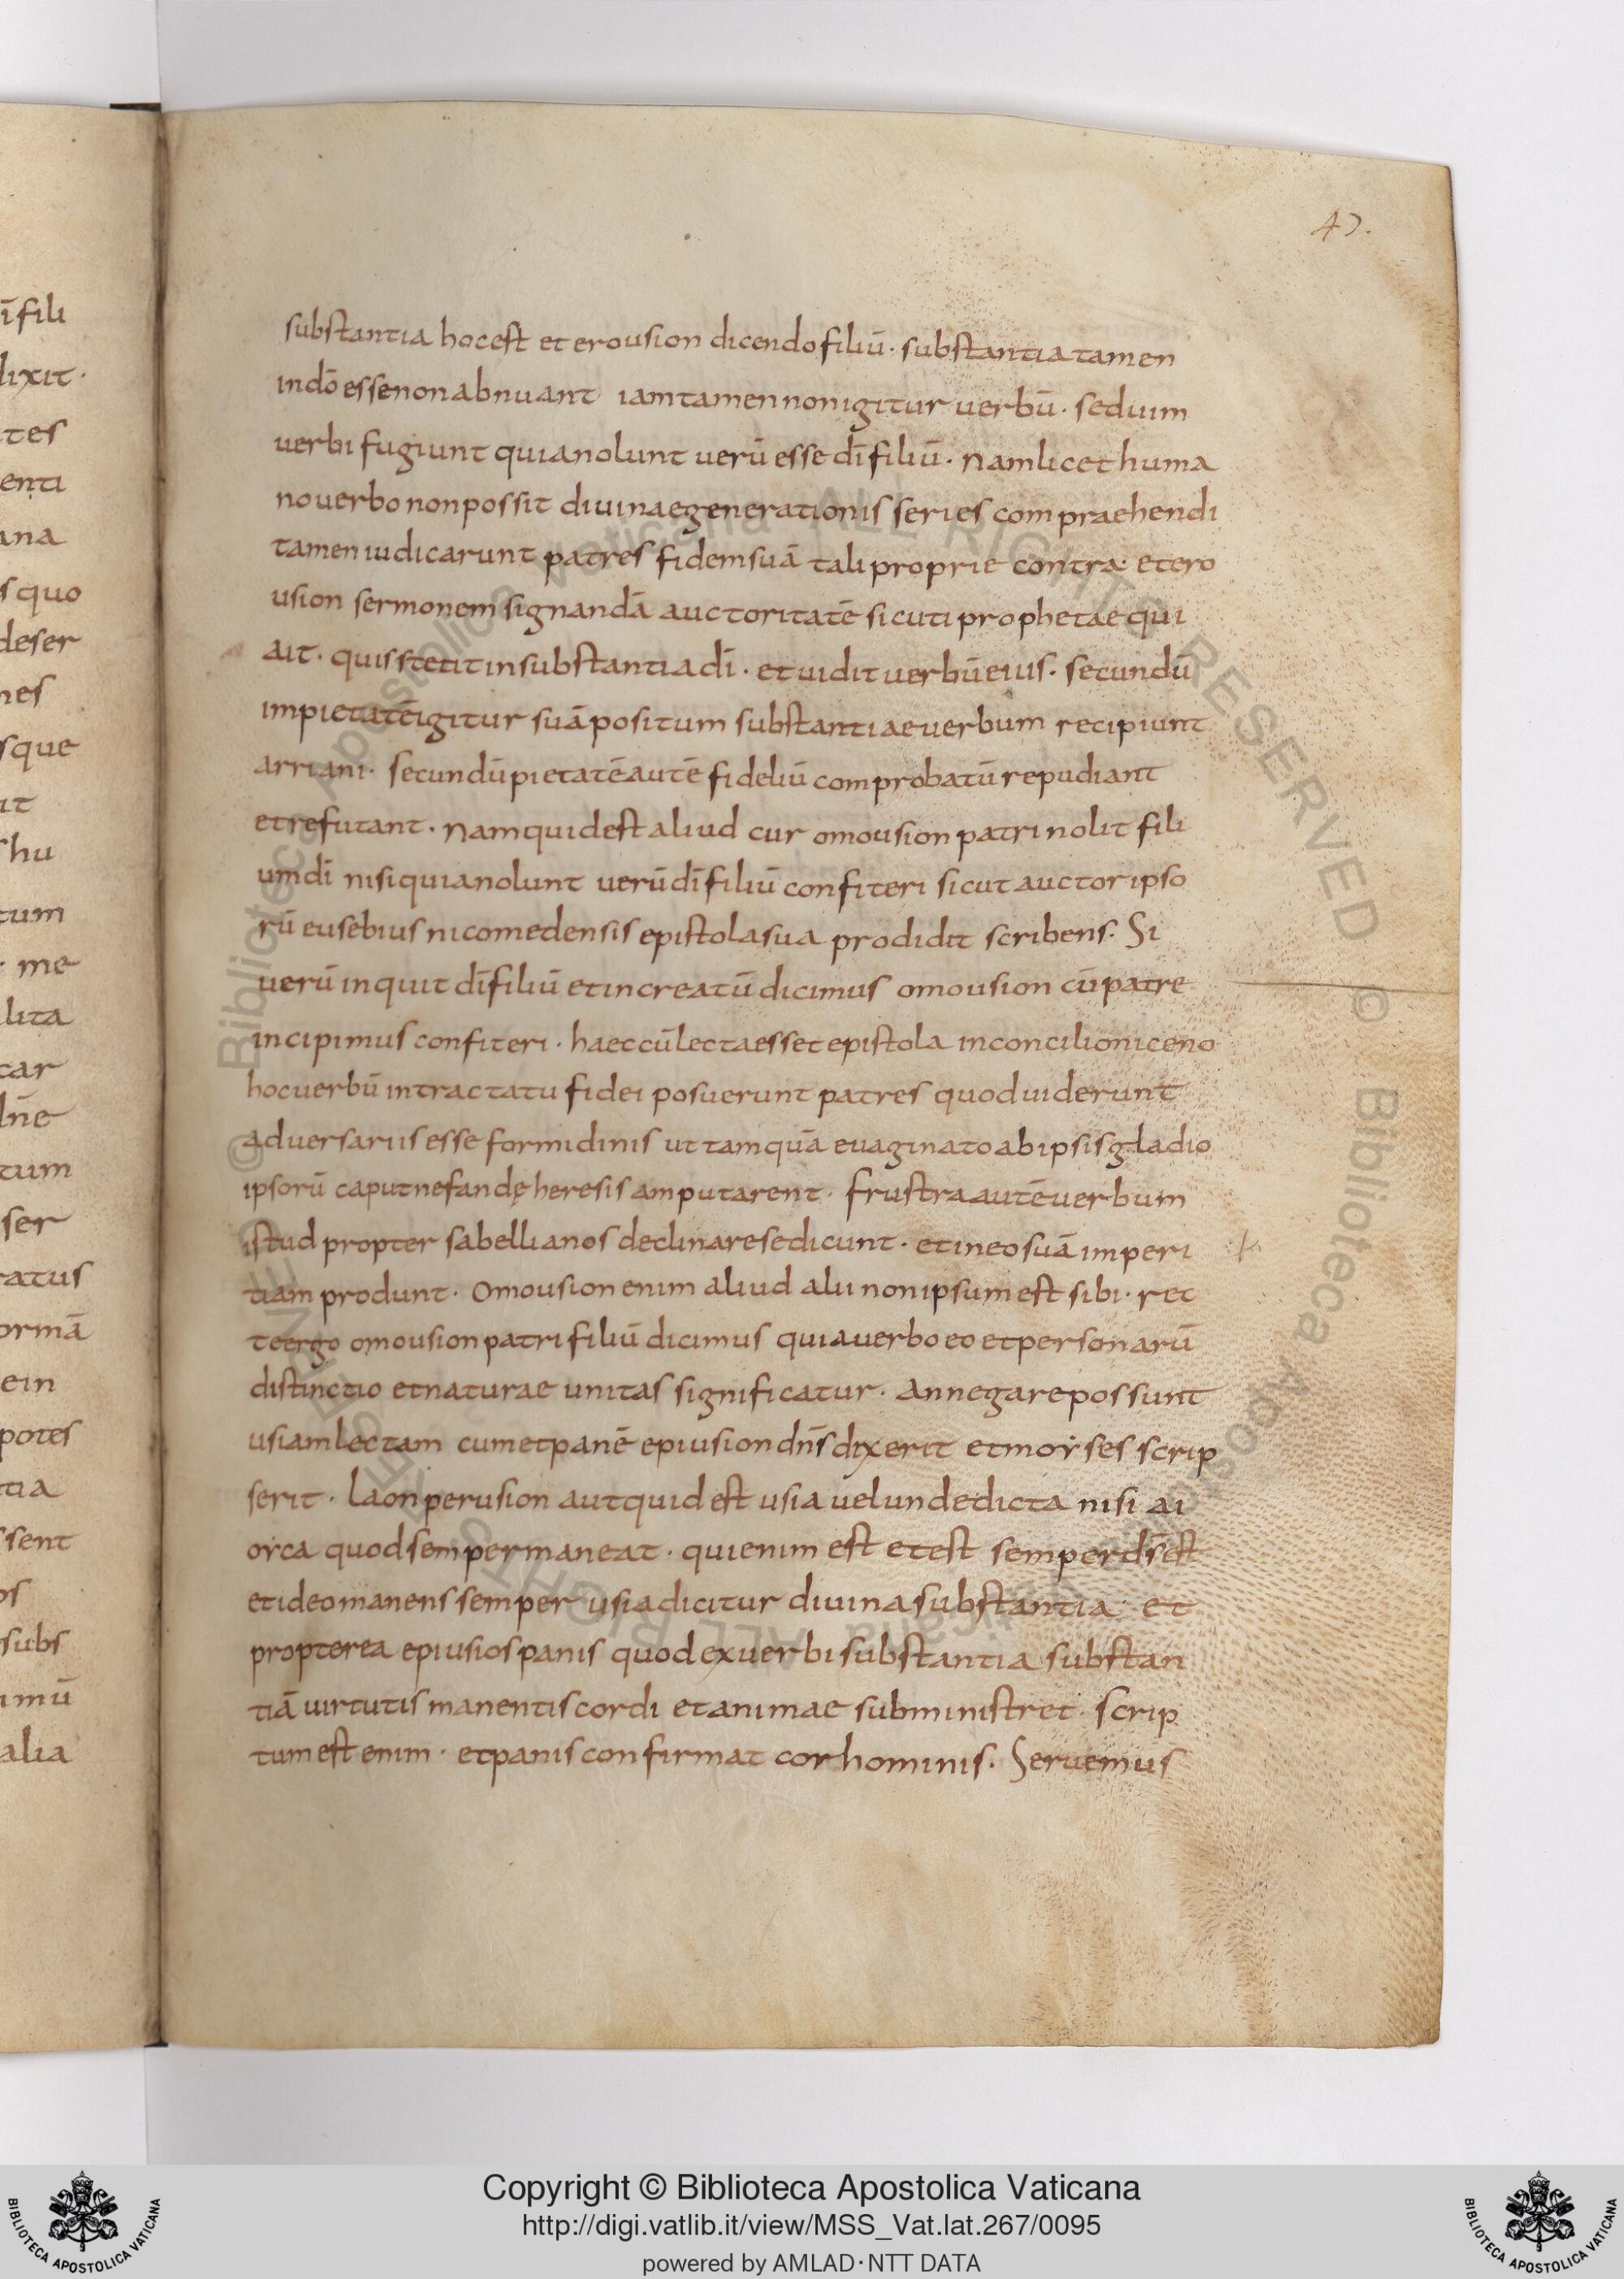 47.
substantia hocest eterousion dicendo filiū · substantia tamen
indō esse non abnuant iam tamen non igitur verbū · sed uim
verbi fugiunt quia nolunt uerū esse dī filiū · Nam licet huma
no uerbo non possit diuinae generationis series compraehendi
tamen iudicarunt patres fidem suā tali proprie contra · etero
usion sermonem signandā auctoritatē sicuti prophetae qui
ait · quis stetit in substantia dī · et uidit uerbū eius · secundū
impietatē igitur suā positum substantiae uerbum recipiunt
arriani · secundū pietatē autē fideliū comprobatū repudiant
et refutant · Nam quid est aliud cur omousion patri nolit fili
um dī nisi quia nolunt uerū dī filiū confiteri sicut auctor ipso
rū eusebius nicomedensis epistola sua prodidit scribens · Si
uerū inquit dī filiū et increatū dicimus omousion cū patre
incipimus confiteri · haec cū lecta esset epistola in concilio niceno
hoc uerbū in tractatu fidei posuerunt patres quod uiderunt
adversariis esse formidinis ut tamquā euaginato ab ipsis gladio
ipsorū caput nefandę heresis amputarent · frustra autē verbum
istud propter sabellianos declinare se dicunt · et in eo suā imperi
tiam produnt · Omousion enim aliud alii non ipsum est sibi · rec
te ergo omousion patri filiū dicimus quia uerbo eo et personarū
distinctio et naturae unitas significatur · An negare possunt
usiam lectam cum et panē epiusion dn̄s dixerit et moẏses scrip
serit · laon perusion aut quid est usia uel unde dicta nisi ai
oẏca quod semper maneat · qui enim est et est semper ds̄ est
et ideo manens semper usia dicitur diuina substantia · et
propterea epiusios panis quod ex uerbi substantia substan
tiā uirtutis manentis cordi et animae subministret · scrip
tum est enim · et panis confirmat cor hominis · Seruemus
ī fili
lixit ·
tes
enti
ana
s quo
deser
nes
sque
it
hu
tum
· me
lita
car
ln̄e
tum
ser
ratus
ormā
ein
potes
tia
sent
os
subs
imū
alia
© Biblioteca Apostolica Vaticana ALL RIGHTS RESERVED © Biblioteca Apostolica Vaticana ALL RIGHTS RESERVED
Copyright © Biblioteca Apostolica Vaticana
http://digi.vatlib.it/view/MSS_Vat.lat.267/0095
powered by AMLAD·NTT DATA
BIBLIOTECA APOSTOLICA VATICANA
BIBLIOTECA APOSTOLICA VATICANA